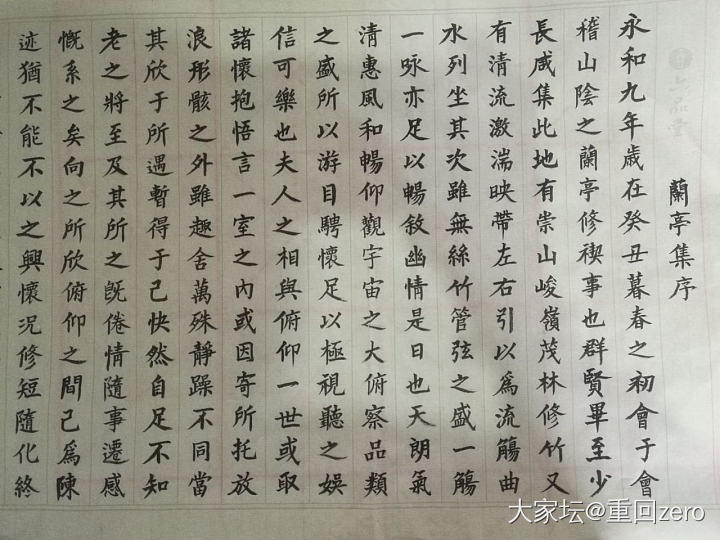 蘭亭集序
永和九年歲在癸丑暮春之初會于會
稽山陰之蘭亭修禊事也群賢畢至少
長咸集此地有崇山峻嶺茂林修竹又
有清流激湍映帶左右引以爲流觴曲
水列坐其次雖無絲竹管弦之盛一觴
一咏亦足以暢敘幽情是日也天朗氣
清惠風和暢仰觀宇宙之大俯察品類
之盛所以游目騁懷足以極視聽之娛
信可樂也夫人之相與俯仰一世或取
諸懷抱悟言一室之內或因寄所托放
浪形骸之外雖趣舍萬殊靜躁不同當
其欣于所遇暫得于己快然自足不知
老之將至及其所之既倦情隨事遷感
慨系之矣向之所欣俯仰之間已爲陳
迹猶不能不以之興懷況修短隨化終
大家坛@重回zero